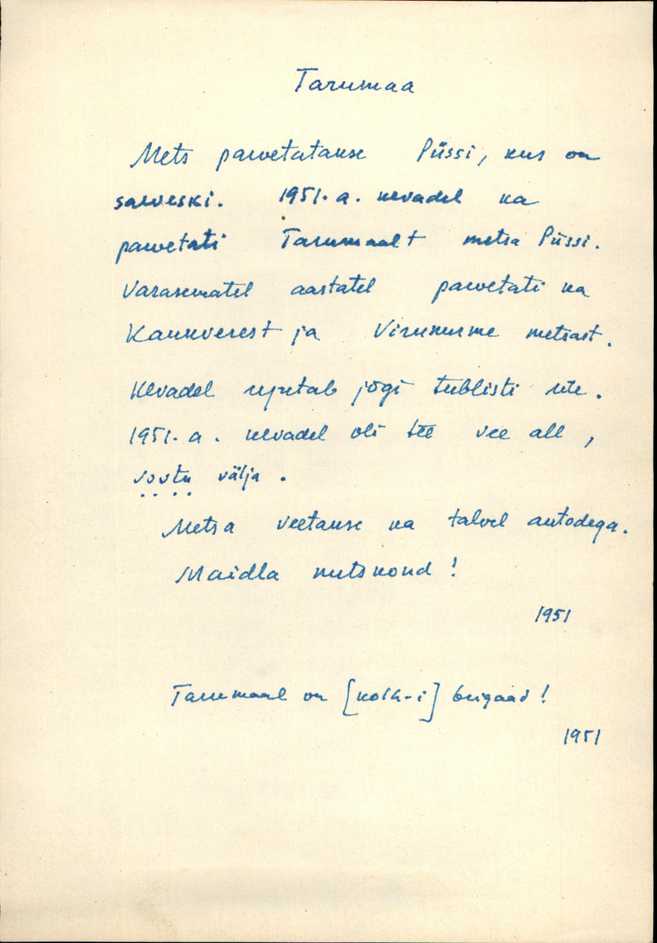 Tarumaa
Mets parvetatakse Püssi, kus on
saeveski. 1951. a. kevadel ka
parvetati Tarumaalt metsa Püssi.
Varasematel aastatel parvetati ka
Kaukverest ja Virunurme metsast.
Kevadel uputab jõgi tublisti üle.
1951. a. kevadel oli tee vee all,
välja.
Metsa veetakse ka talvel autodega.
Maidla metskond!
1951
Tarumaal on [kolh-i] brigaad!
1951